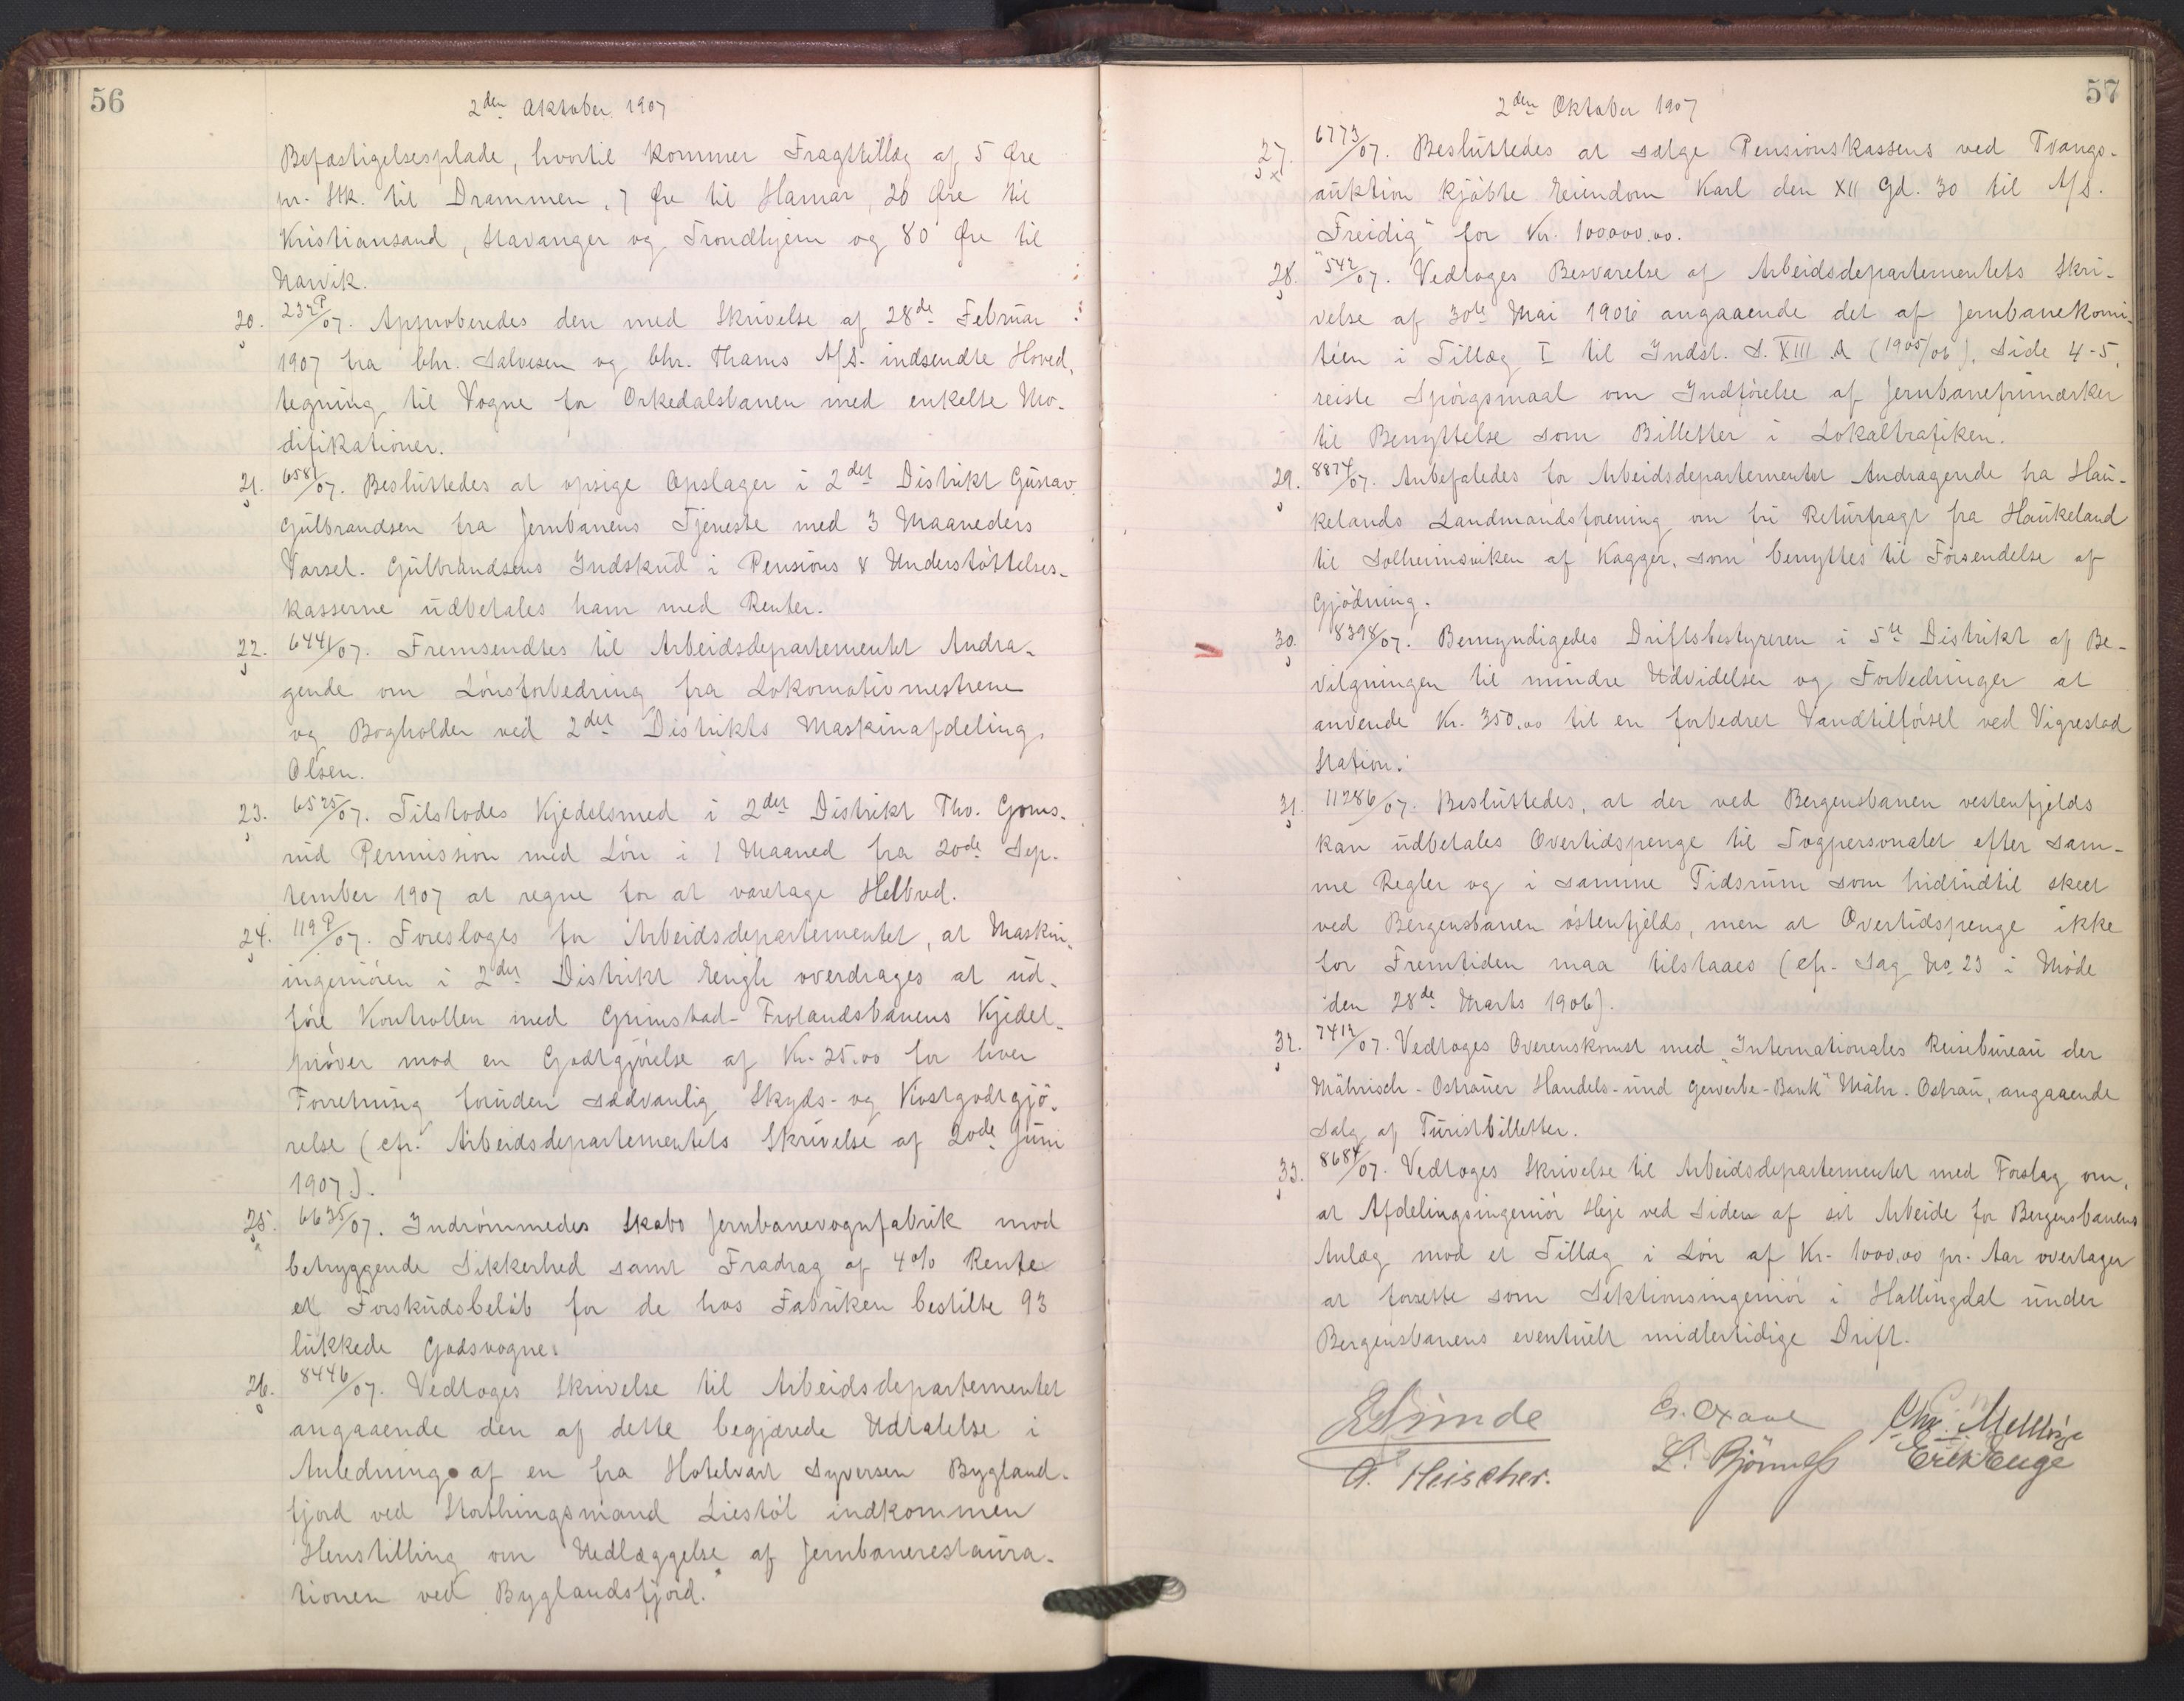 56
2den Oktober 1907
Befæstigelsesplade, hvortil kommer Fragttillæg af 5 Øre
pr. Stk. til Drammen, 7 Øre til Hamar, 20 Øre til
Kristiansand, Stavanger og Trondhjem og 80 Øre til
Narvik.
20. 232P/07. Approberedes den med Skrivelse af 28de Februar
1907 fra Chr. Salvesen og Chr. Thams A/S. indsendte Hoved-
tegning til Vogne for Orkedalsbanen med enkelte Mo-
difikationer.
21. 6581/07. Besluttedes at opsige Opslager i 2det Distrikt Gustav
Gulbrandsen fra Jernbanens Tjeneste med 3 Maaneders
Varsel. Gulbrandsens Indskud i Pensions & Understøttelses-
kasserne udbetales ham med Renter.
22. 6441/07. Fremsendtes til Arbeidsdepartementet Andra-
gende om Lønsforbedring fra Lokomotivmestrene
og Bogholder ved 2det Distrikts Maskinafdeling,
Olsen.
23. 6525/07. Tilstodes Kjedelsmed i 2det Distrikt Thv. Goms-
rud Permission med Løn i 1 Maaned fra 20de Sep-
tember 1907 at regne for at varetage Helbred.
24. 119P/07. Foresloges for Arbeidsdepartementet, at Maskin-
ingeniøren i 2det Distrikt Engh overdrages at ud-
føre Kontrollen med Grimstad-Frolandsbanens Kjedel-
prøver mod en Godtgjørelse af Kr. 25.00 for hver
Forretning foruden sædvanlig Skyds- og Kostgodtgjø-
relse (cfr. Arbeidsdepartementets Skrivelse af 20de Juni
1907.).
25. 6635/07. Indrømmedes Skabo Jernbanevognfabrik mod
betryggende Sikkerhed samt Fradrag af 4% Rente
et Forskudsbeløb for de hos Fabriken bestilte 93
lukkede Godsvogne.
26. 8446/07. Vedtoges Skrivelse til Arbeidsdepartementet
angaaende den af dette begjærede Udtalelse i
Anledning af en fra Hotelvært Syversen Bygland-
fjord ved Storthingsmand Liestøl indkommen
Henstilling om Nedlæggelse af Jernbanerestaura-
tionen ved Byglandsfjord.
57
2den Oktober 1907
27. 6773/07. Besluttedes at sælge Pensionskassens ved Tvangs-
auktion kjøbte Eiendom Karl den XII Gd. 30 til A/S.
"Freidig" for Kr. 100000.00.
28. 542/07. Vedtoges Besvarelse af Arbeidsdepartementets Skri-
velse af 30te Mai 1906 angaaende det af Jernbanekomi-
téen i Tillæg I til Indst. S. XIII A (1905/06), Side 4-5,
reiste Spørgsmaal om Indførelse af Jernbanefrimærker
til Benyttelse som Billetter i Lokaltrafiken.
29. 8874/07. Anbefaledes for Arbeidsdepartementet Andragende fra Hau-
kelands Landmandsforening om fri Returfragt fra Haukeland
til Solheimsviken af Kagger, som benyttes til Forsendelse af
Gjødning.
30. 8398/07. Bemyndigedes Driftsbestyreren i 5te Distrikt af Be-
vilgningen til mindre Udvidelser og Forbedringer at
anvende Kr. 350.00 til en forbedret Vandtilførsel ved Vigrestad
Station.
31. 11286/07. Besluttedes, at der ved Bergensbanen vestenfjelds
kan udbetales Overtidspenge til Togpersonalet efter sam-
me Regler og i samme Tidsrum som hidindtil skeet
ved Bergensbanen østenfjelds, men at Overtidspenge ikke
for Fremtiden maa tilstaaes (cfr. Sag No 23 i Møde
den 28de Marts 1906).
32. 7412/07. Vedtoges Overenskomst med "Internationales Reisebureau der
Mährisch-Ostrauer Handels-und Gewerbe-Bank" Mähr. Ostrau, angaaende
Salg af Turistbilletter.
33. 8684/07. Vedtoges Skrivelse til Arbeidsdepartementet med Forslag om,
at Afdelingsingeniør Heje ved Siden af sit Arbeide for Bergensbanens
Anlæg mod et Tillæg i Løn af Kr. 1000.00 pr. Aar overtager
at forsette som Sektionsingeniør i Hallingdal under
Bergensbanens eventuelt midlertidige Drift.
ESunde Chr. Mellbye
A. Fleischer. Erik Enge